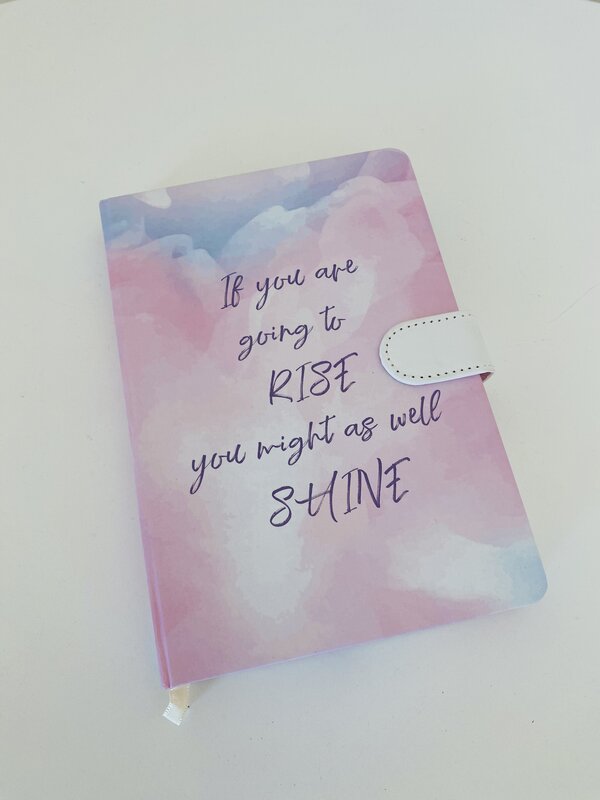 If you are
going to
RISE
you might as well
SHINE